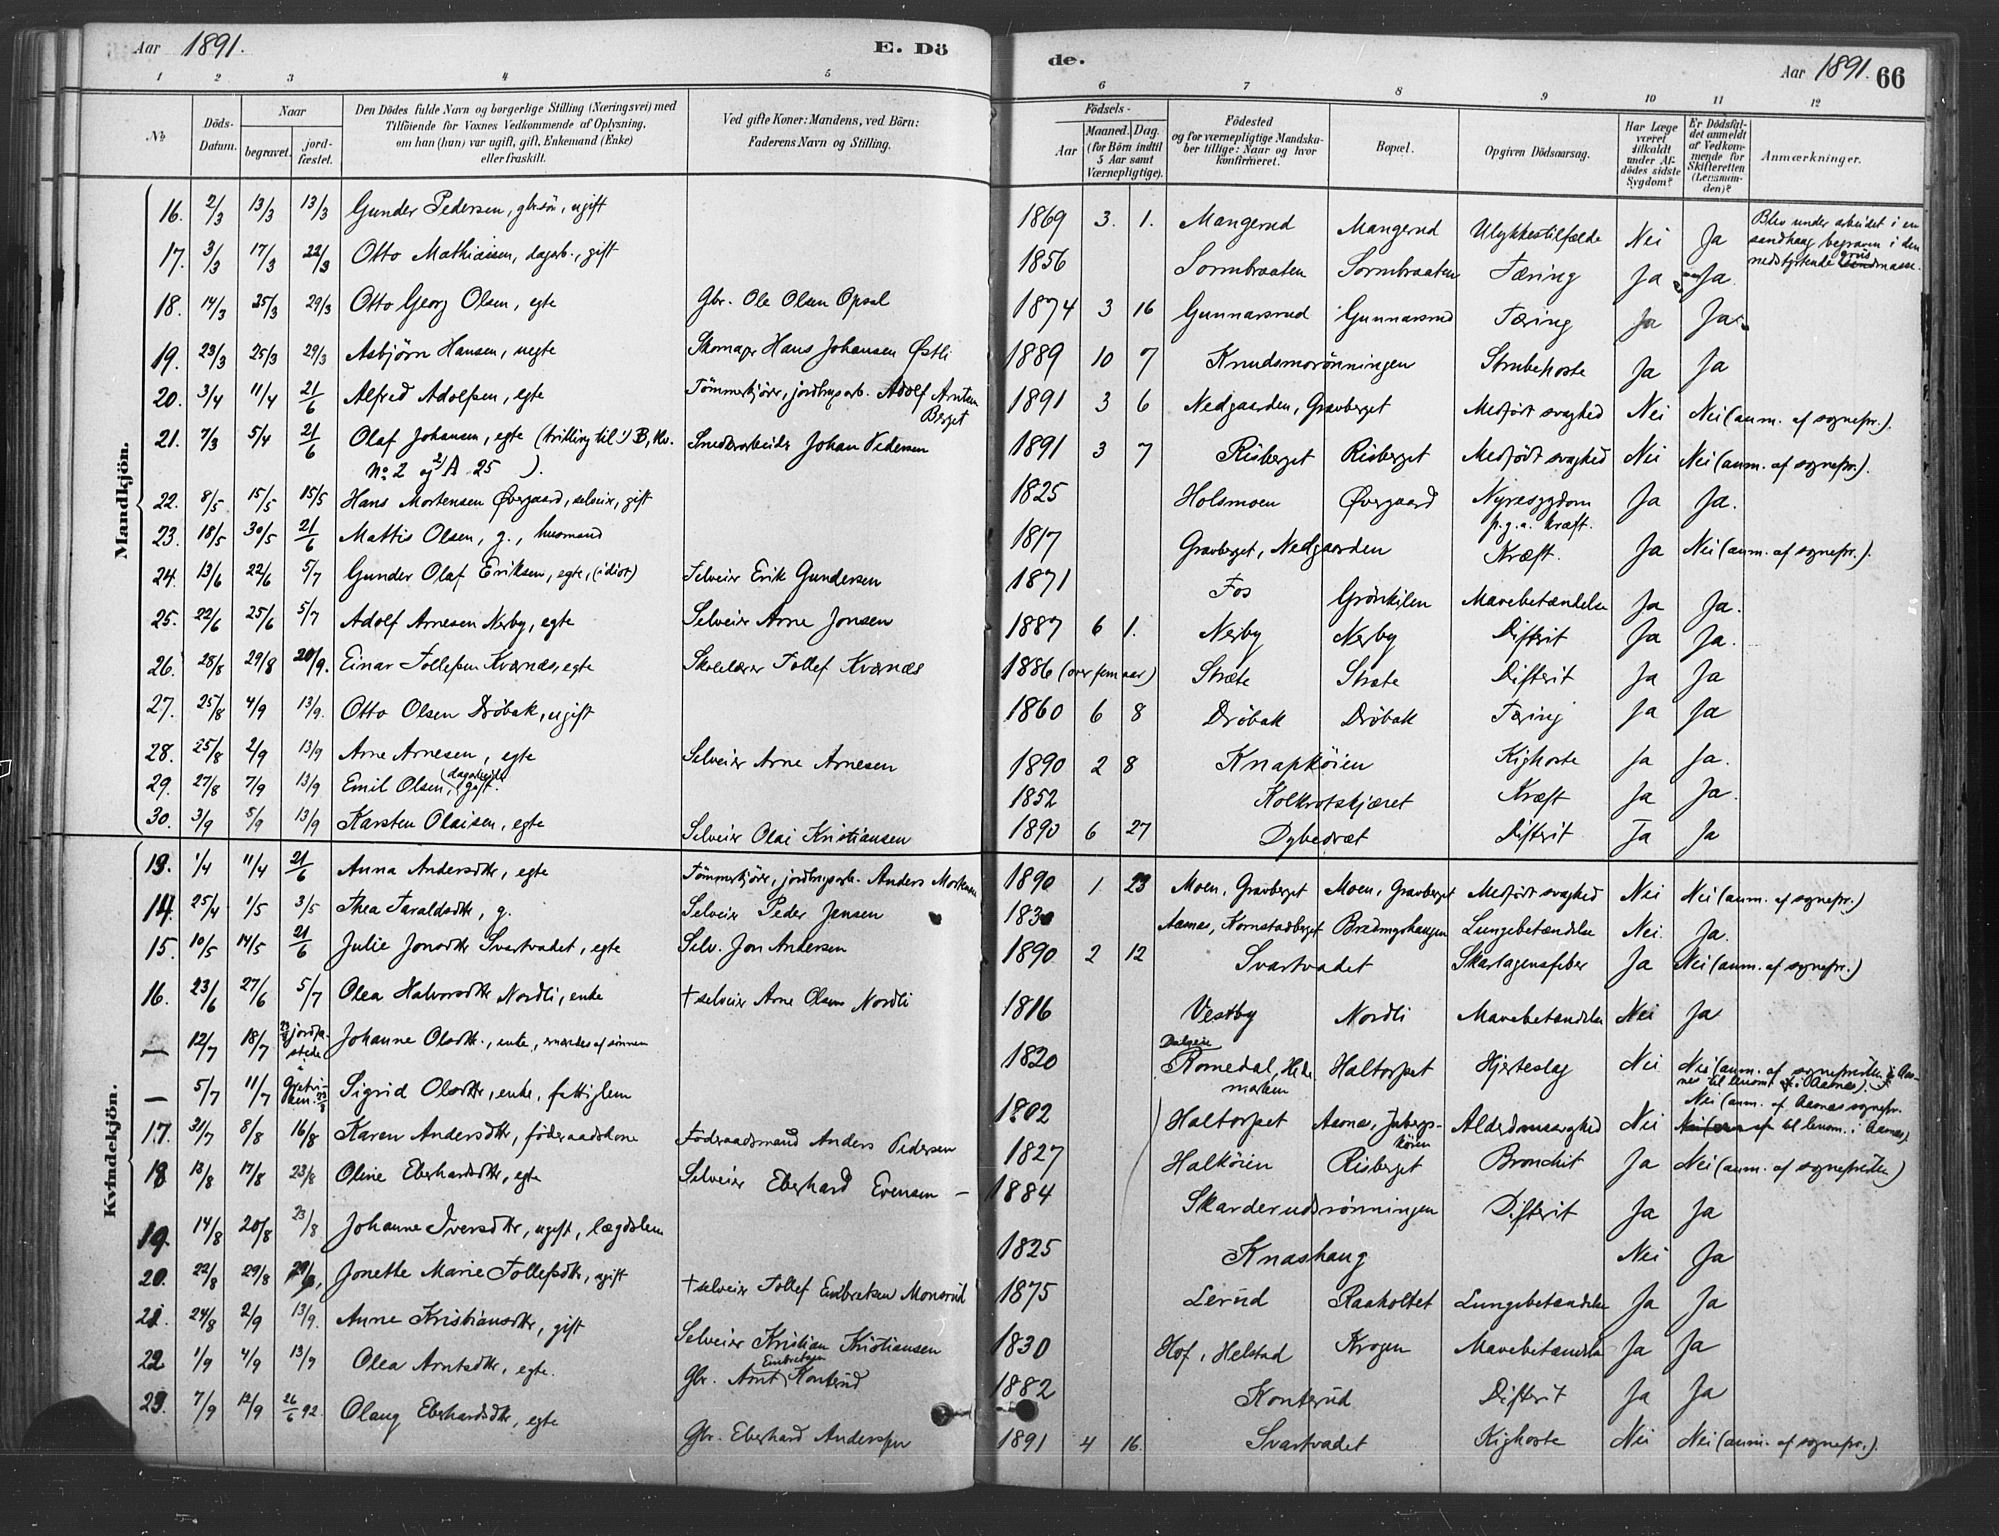 Aar 1891. E. Dö
de. Aar 1891. 66
1 2 3 4 5
6 7 8 9 10 11 12
No. Döds-Datum. Naar begravet. jordfæstet. Den Dödes fulde Navn og borgerlige Stilling (Næringsvei) med Tilföiende for Voxnes Vedkommende af Oplysning, om han (hun) var ugift, gift, Enkemand (Enke) eller fraskilt. Ved gifte Koner: Mandens, ved Börn: Faderens Navn og Stilling.
Födsels- Aar Maaned. Dag. (for Börn indtil 5 Aar samt Værnepligtige). Födested og for værnepligtige Mandskaber tillige: Naar og hvor konfirmeret. Bopæl. Opgiven Dödsaarsag. Har Læge været tilkaldt under Afdödes sidste Sygdom? Er Dödsfaldet anmeldt af Vedkommende for Skifteretten (Lensmanden)? Anmærkninger.
Mandkjön.
16. 2/3 13/3 13/3 Gunder Pedersen, gbr.sön, ugift 1869 3. 1. Mangerud Mangerud Ulykkestilfælde Nei Ja Blev under arbeidet i en sandhaug begraven i den nedstyrtende grus
17. 3/3 17/3 22/3 Otto Mathiasen, dagarb., gift 1856 Sormbraaten Sormbraaten Tæring Ja Ja.
18. 14/3 25/3 29/3 Otto Georg Olsen, egte Gbr. Ole Olsen Opsal 1874 3 16 Gunnarsrud Gunnarsrud Tæring Ja Ja.
19. 23/3 25/3 29/3 Asbjörn Hansen, uegte Skomager Hans Johansen Østli 1889 10 7 Knudsmorönningen Strubehoste Ja Ja
20. 3/4 11/4 21/6 Alfred Adolfsen, egte Tömmerkjörer, jordbrugsarb. Adolf Arntsen Berget 1891 3 6 Nedgaarden, Gravberget Medfödt svaghed Nei Nei (anm. af sognepr.).
21. 7/3 5/4 21/6 Olaf Johansen, egte (trilling til 1) B, kv. No 2 og 2) A 25 ). Snedkerarbeider Johan Pedersen 1891 3 7 Risberget Risberget Medfödt svaghed Nei Nei (anm. af sognepr.).
22. 8/5 15/5 15/5 Hans Mortensen Øvergaard, selveier, gift 1825 Holsmoen Øvergaard Nyresygdom p.g.a. kræft. Ja Ja.
23. 18/5 30/5 21/6 Mattis Olsen, g., husmand 1817 Gravberget, Nedgaarden Kræft. Ja Nei (anm. af sognepr.).
24. 13/6 22/6 5/7 Gunder Olaf Eriksen, egte, (idiot) Selveier Erik Gundersen 1871 Fos Grönkilen Mavebetændelse Ja Ja.
25. 22/6 25/6 5/7 Adolf Arnesen Nerby, egte Selveier Arne Jonsen 1887 6 1. Nerby Nerby Difterit Ja Ja.
26. 28/8 29/8 20/9. Einar Tollefsen Kværnæs, egte Skolelærer Tollef Kværnæs 1886 (over fem aar) Stræte Stræte Difterit Ja Ja
27. 25/8 4/9 13/9. Otto Olsen Dröbak, ugift 1860 6 8 Dröbak Dröbak Tæring Ja Ja
28. 25/8 2/9 13/9 Arne Arnesen, egte Selveier Arne Arnesen 1890 2 8 Knapköien Kighoste Ja Ja.
29. 27/8 7/9 13/9 Emil Olsen, (dagarbeider) gift. 1852 Kolkrotskjæret Kræft Ja Ja.
30. 3/9 5/9 13/9 Karsten Olaisen, egte Selveier Olai Kristiansen 1890 6 27 Dybedræt Difterit Ja Ja
Kvindekjön.
13. 1/4 11/4 21/6 Anna Andersdtr, egte Tömmerkjörer, jordbrugsarb. Anders Mortensen 1890 1 23 Moen, Gravberget Moen, Gravberget Medfödt svaghed Nei Nei (anm. af sognepr.)
14. 25/4 1/5 3/5 Thea Taraldsdtr, g. Selveier Peder Jensen 1830 Aasnæs, Kornstadberget Brødmyrhaugen Lungebetændelse Nei. Ja.
15. 10/5 14/5 21/6 Julie Jonsdtr Svartvadet, egte Selv. Jon Andersen 1890 2 12 Svartvadet Skarlagensfeber Ja Nei (anm. af sognepr.)
16. 23/6 27/6 5/7 Olea Halvorsdtr Nordli, enke † selveier Arne Olsen Nordli 1816 Vestby Nordli Mavebetændelse Nei Ja
— 12/7 18/7 jordfæstede Johanne Olsdtr., enke, ernæredes af sönnen 1820 Romedal, Hedemarken Haltorpet Hjerteslag Nei Nei (anm. af sognepresten i Aasnes til lensm. i Aasnæs).
— 5/7 11/7 Sigrid Olsdtr, enke, fattiglem 1802 Haltorpet Aasnæs, Alderdomssvaghed Nei Nei (anm. af Aasnæs sognepr. til lensm. i Aasnæs)
17. 31/7 8/8 16/8 Karen Andersdtr, föderaadskone Föderaadsmand Anders Pedersen 1827 Halköien Risberget Bronchit Ja Nei (anm. af sognepresten)
18 13/8 17/8 23/8 Oline Eberhardsdtr, egte Selveier Eberhard Evensen — 1884 Skarderudsrönningen Difterit Ja Ja
19. 14/8 20/8 23/8 Johanne Iversdtr, ugift, lægdslem 1825 Knashaug Nei Ja
20. 22/8 29/8 Jonette Marie Tollefsdtr, ugift † selveier Tollef Embretsen Monsrud 1875 Lerud Raaholtet Lungebetændelse Ja Ja
21. 24/8 2/9 13/9. Anne Kristiansdtr, gift Selveier Kristian Kristiansen 1830 Hof, Helstad Krogen Mavebetændelse Ja Ja
22 1/9 4/9 13/9 Olea Arntsdtr, egte. Gbr. Arnt Embretsen Konterud 1882 Konterud Difterit Ja Ja
23. 7/9 12/9 26/6 92. Olaug Eberhardsdtr, egte Gbr. Eberhard Andersen 1891 4 16. Svartvadet Kighoste Nei Nei (anm. af sognepr.).